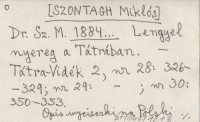 [SZONTAGH Miklós]
Dr. Sz. M. 1884... Lengyel
nyereg a Tátrában. —
Tátra-Vidék 2, nr 28: 326-
-329; nr 29: - ; nr 30:
350-353.
Opis wycieczki na Polski